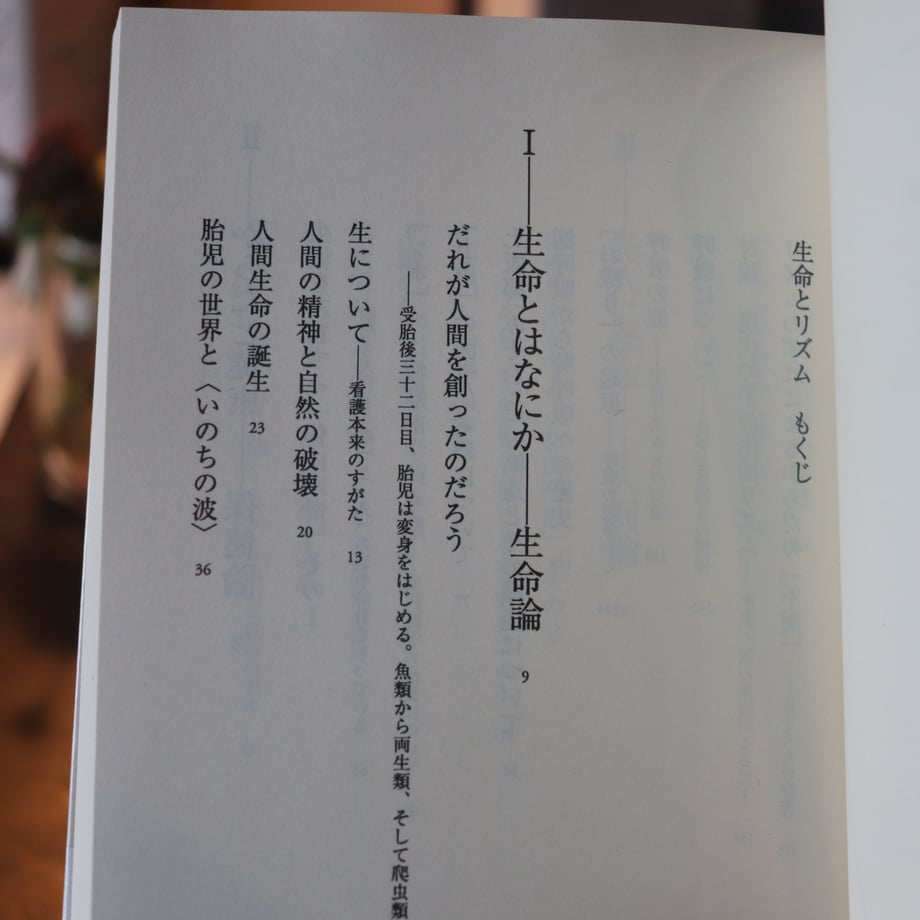 生命とリズム　もくじ
Ⅰ――生命とはなにか――生命論　9
だれが人間を創ったのだろう
――受胎後三十二日目、胎児は変身をはじめる。魚類から両生類、そして爬虫類
生について――看護本来のすがた　13
人間の精神と自然の破壊　20
人間生命の誕生　23
胎児の世界と〈いのちの波〉　36